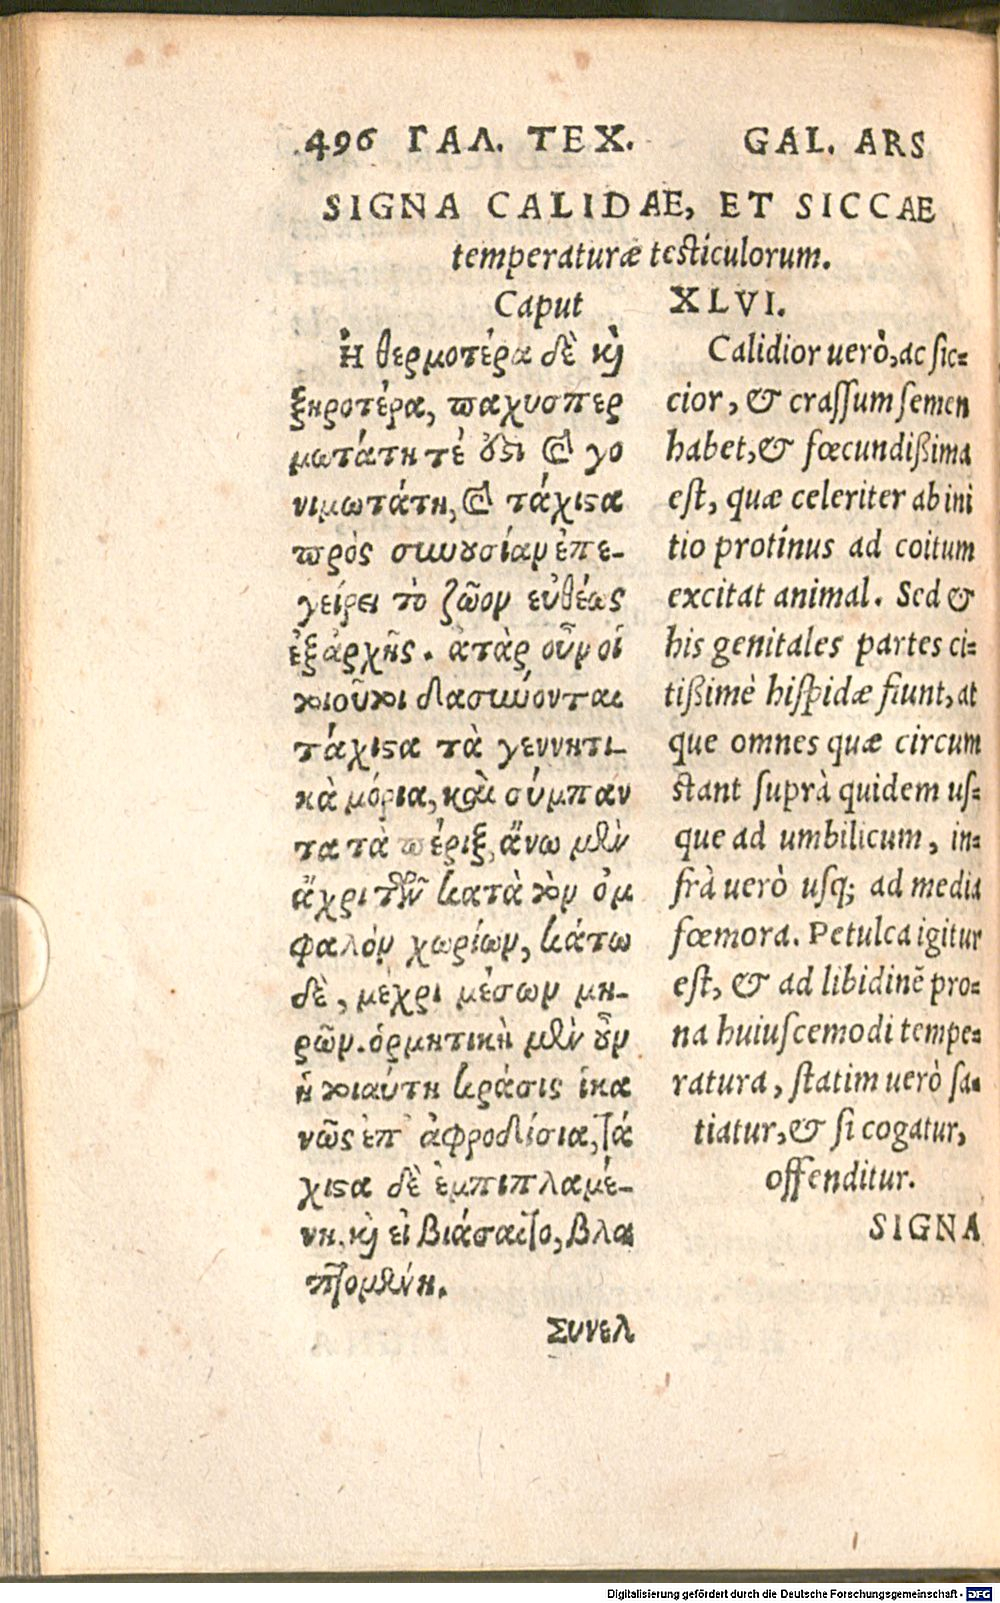 496 ΓΑΛ. ΤΕΧ. GAL. ARS
SIGNA CALIDAE, ET SICCAE
temperaturæ testiculorum.
Caput XLVI.
Ἡ θερμοτέρα δὲ καὶ
ξηροτέρα, παχυσπερ
μωτάτη τέ ὅστι καὶ γο
νιμωτάτη, καὶ τάχιστα
πρὸς συνουσίαν ἐπε-
γείρει τὸ ζῶον εὐθέως
ἐξ ἀρχῆς. ἀτὰρ οὖν οἱ
τοιοῦτοι δασύνονται
τάχιστα τὰ γεννητι-
κὰ μόρια, καὶ σύμπαν
τα τὰ πέριξ, ἄνω μὲν
ἄχρι τῶν κατὰ τὸν ὀμ
φαλὸν χωρίων, κάτω
δὲ, μέχρι μέσων μη-
ρῶν. ὁρμητικὴ μὲν οὖν
ἡ τοιαύτη κράσις ἱκα
νῶς ἐπ' ἀφροδίσια, τά
χιστα δὲ ἐμπιπλαμέ-
νη. καὶ εἰ βιάσαιτο, βλα
πτομένη.
Συνελ
Calidior uerò, ac sic=
cior, & crassum semen
habet, & fœcundißima
est, quæ celeriter ab ini
tio protinus ad coitum
excitat animal. Sed &
his genitales partes ci=
tißimè hispidæ fiunt, at
que omnes quæ circum
stant suprà quidem us=
que ad umbilicum, in=
frà uerò usq; ad media
fœmora. Petulca igitur
est, & ad libidinẽ pro=
na huiuscemodi tempe=
ratura, statim uerò sa=
tiatur, & si cogatur,
offenditur.
SIGNA
Digitalisierung gefördert durch die Deutsche Forschungsgemeinschaft - DFG